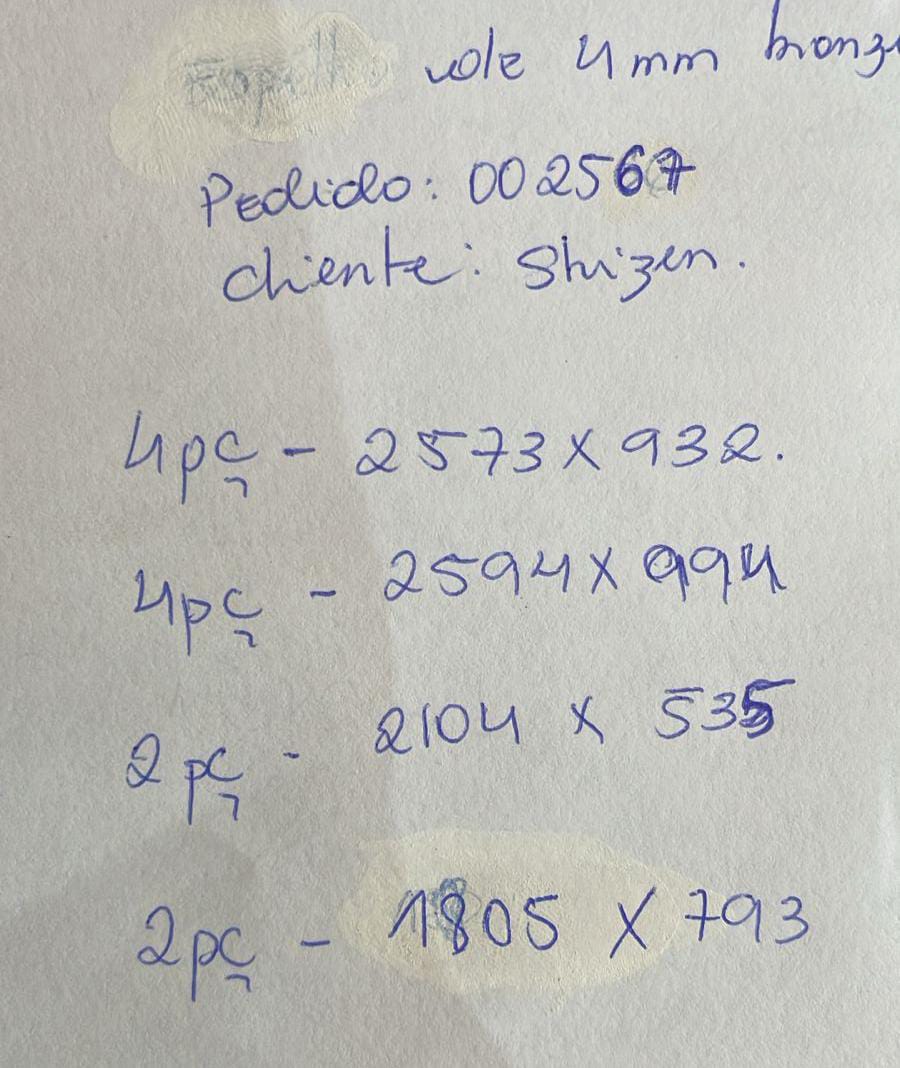 vole 4mm bronze
Pedido: 002567
cliente: Shizen.
4pç - 2573 x 932.
4pç - 2594 x 994
2pç - 2104 x 535
2pç - 1805 x 793